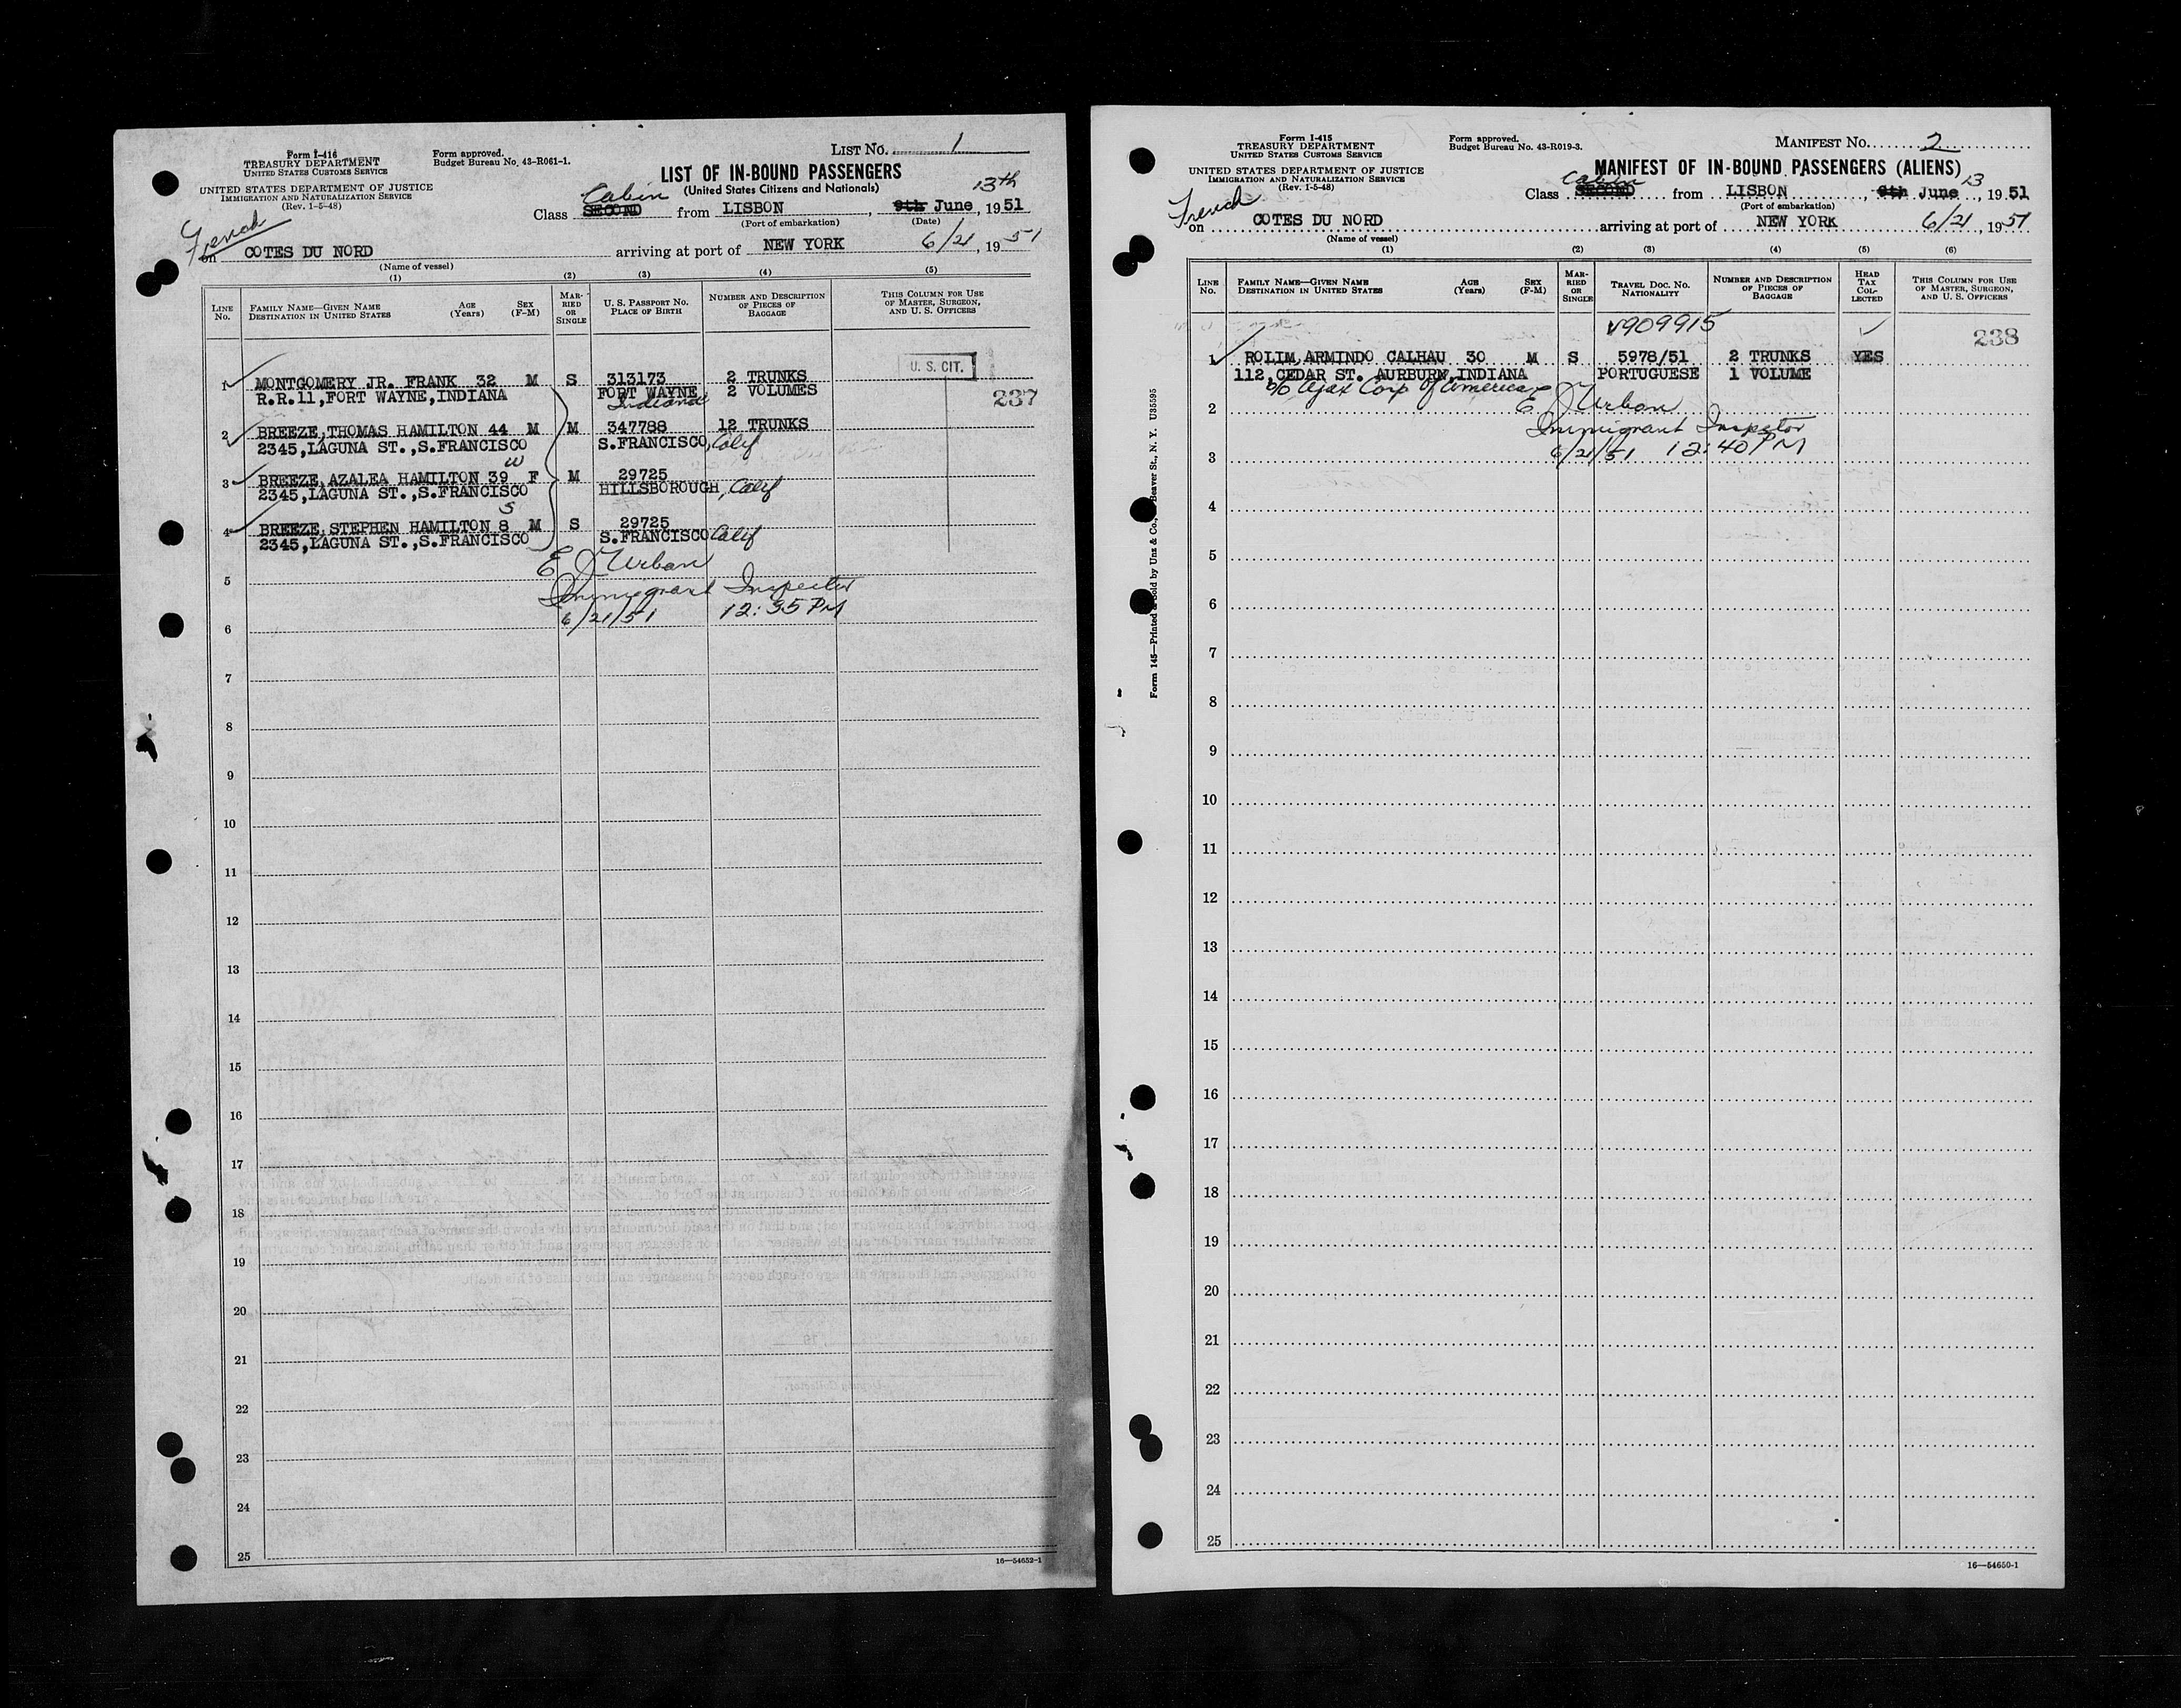 Form I-416
TREASURY DEPARTMENT
UNITED STATES CUSTOMS SERVICE
UNITED STATES DEPARTMENT OF JUSTICE
IMMIGRATION AND NATURALIZATION SERVICE
(Rev. 1-5-48)
Form approved.
Budget Bureau No. 43-R061-1.
LIST NO. 1
LIST OF IN-BOUND PASSENGERS
(United States Citizens and Nationals)
Cabin 13th
Class SECOND from LISBON, 9th June, 1951
(Port of embarkation) (Date)
French
on COTES DU NORD arriving at port of NEW YORK 6/21, 1951
(Name of vessel)
(1) (2) (3) (4) (5)
LINE No.
FAMILY NAME—GIVEN NAME AGE (Years) SEX (F-M)
DESTINATION IN UNITED STATES
MARRIED OR SINGLE
U. S. PASSPORT NO.
PLACE OF BIRTH
NUMBER AND DESCRIPTION OF PIECES OF BAGGAGE
THIS COLUMN FOR USE OF MASTER, SURGEON, AND U. S. OFFICERS
U. S. CIT.
1 MONTGOMERY JR. FRANK 32 M S 313173 2 TRUNKS
R.R.11,FORT WAYNE,INDIANA FORT WAYNE, 2 VOLUMES 237
Indiana
2 BREEZE,THOMAS HAMILTON 44 M M 347788 12 TRUNKS
2345,LAGUNA ST.,S.FRANCISCO S.FRANCISCO, Calif
W
3 BREEZE,AZALEA HAMILTON 39 F M 29725
2345,LAGUNA ST.,S.FRANCISCO HILLSBOROUGH, Calif
S
4 BREEZE,STEPHEN HAMILTON 8 M S 29725
2345,LAGUNA ST.,S.FRANCISCO S.FRANCISCO Calif
E J Urban
5
Immigrant Inspector
6/21/51 12:35 PM
6
7
8
9
10
11
12
13
14
15
16
17
18
19
20
21
22
23
24
25
16—54652-1
Form I-415
TREASURY DEPARTMENT
UNITED STATES CUSTOMS SERVICE
UNITED STATES DEPARTMENT OF JUSTICE
IMMIGRATION AND NATURALIZATION SERVICE
(Rev. 1-5-48)
Form approved.
Budget Bureau No. 43-R019-3.
MANIFEST NO. 2
MANIFEST OF IN-BOUND PASSENGERS (ALIENS)
Cabin 13
Class SECOND from LISBON, 9th June, 1951
(Port of embarkation)
French
on COTES DU NORD arriving at port of NEW YORK 6/21, 1951
(Name of vessel)
(1) (2) (3) (4) (5) (6)
LINE No.
FAMILY NAME—GIVEN NAME AGE (Years) SEX (F-M)
DESTINATION IN UNITED STATES
MARRIED OR SINGLE
TRAVEL DOC. NO.
NATIONALITY
NUMBER AND DESCRIPTION OF PIECES OF BAGGAGE
HEAD TAX COLLECTED
THIS COLUMN FOR USE OF MASTER, SURGEON, AND U. S. OFFICERS
V909915
238
1 ROLIM,ARMINDO CALHAU 30 M S 5978/51 2 TRUNKS YES
112,CEDAR ST. AURBURN,INDIANA PORTUGUESE 1 VOLUME
c/o Ajax Corp of America
2 E J Urban
Immigrant Inspector
3 6/21/51 12:40 PM
4
5
6
7
8
9
10
11
12
13
14
15
16
17
18
19
20
21
22
23
24
25
Form 145—Printed & Sold by Unz & Co., Beaver St., N. Y. U35595
16—54650-1